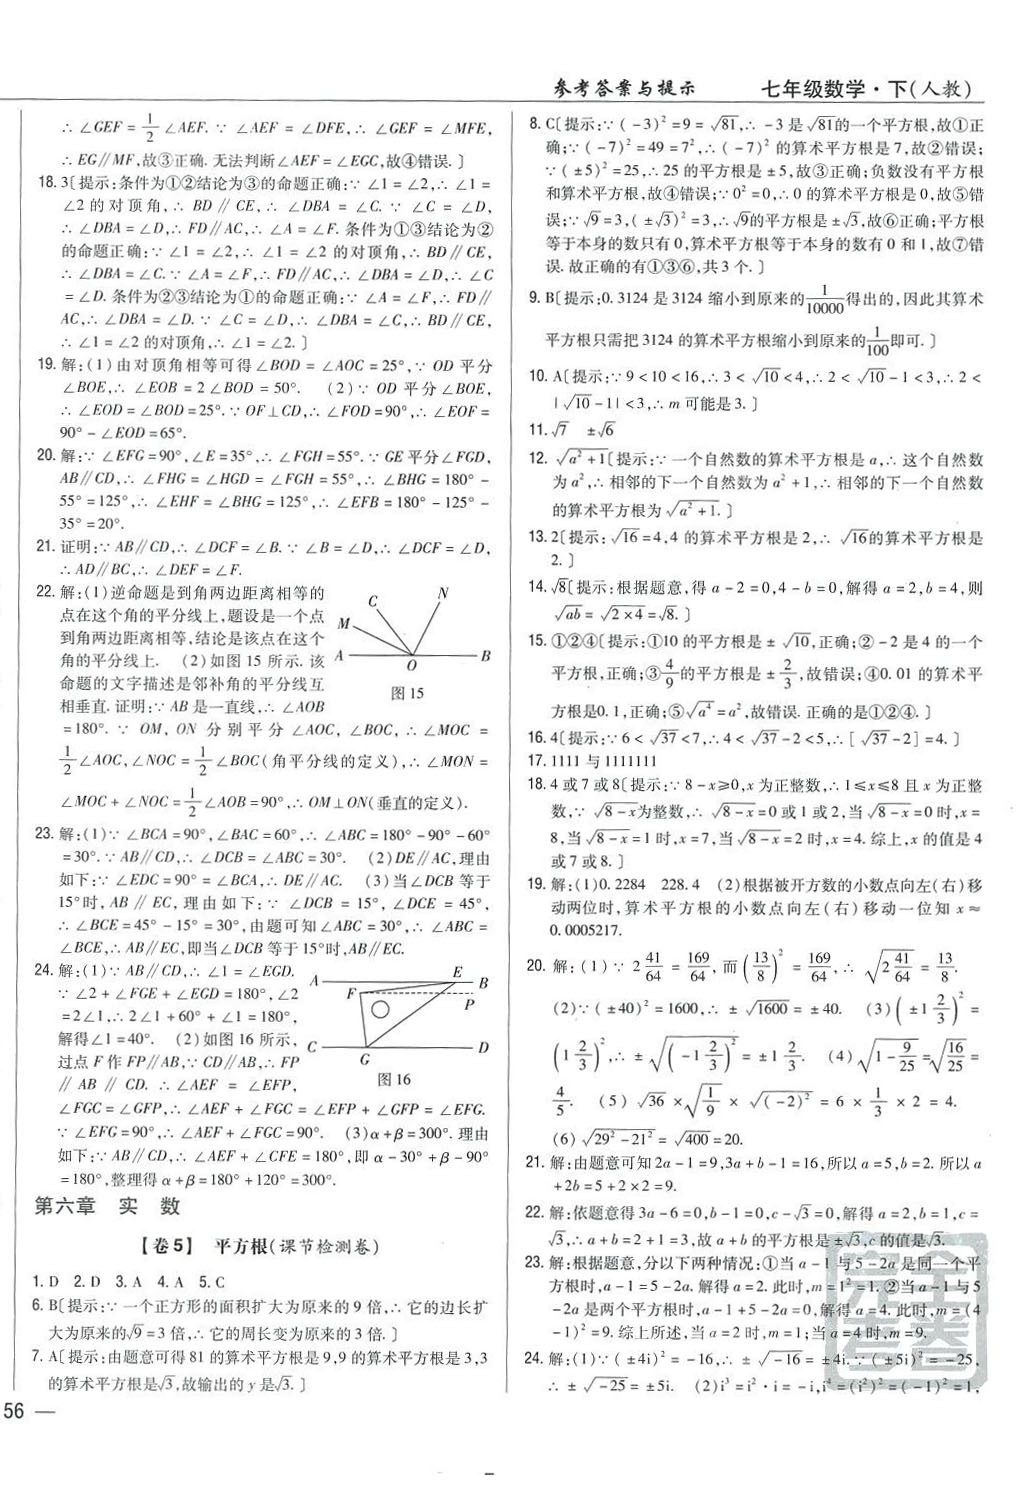 参考答案与提示 七年级数学·下(人教)
∴∠GEF=1/2∠AEF.∵∠AEF=∠DFE,∴∠GEF=∠MFE,
∴EG∥MF,故③正确.无法判断∠AEF=∠EGC,故④错误.〕
18.3〔提示:条件为①②结论为③的命题正确:∵∠1=∠2,∴∠1=
∠2的对顶角,∴BD∥CE,∴∠DBA=∠C.∵∠C=∠D,
∴∠DBA=∠D,∴FD∥AC,∴∠A=∠F.条件为①③结论为②
的命题正确:∵∠1=∠2,∴∠1=∠2的对顶角,∴BD∥CE,
∴∠DBA=∠C.∵∠A=∠F,∴FD∥AC,∴∠DBA=∠D,∴∠C
=∠D.条件为②③结论为①的命题正确:∵∠A=∠F,∴FD∥
AC,∴∠DBA=∠D.∵∠C=∠D,∴∠DBA=∠C,∴BD∥CE,
∴∠1=∠2的对顶角,∴∠1=∠2.〕
19.解:(1)由对顶角相等可得∠BOD=∠AOC=25°,∵OD平分
∠BOE,∴∠EOB=2∠BOD=50°. (2)∵OD平分∠BOE,
∴∠EOD=∠BOD=25°.∵OF⊥CD,∴∠FOD=90°,∴∠EOF=
90°-∠EOD=65°.
20.解:∵∠EFG=90°,∠E=35°,∴∠FGH=55°.∵GE平分∠FGD,
AB∥CD,∴∠FHG=∠HGD=∠FGH=55°,∴∠BHG=180°-
55°=125°,∴∠EHF=∠BHG=125°,∴∠EFB=180°-125°-
35°=20°.
21.证明:∵AB∥CD,∴∠DCF=∠B.∵∠B=∠D,∴∠DCF=∠D,
∴AD∥BC,∴∠DEF=∠F.
22.解:(1)逆命题是到角两边距离相等的
点在这个角的平分线上,题设是一个点
到角两边距离相等,结论是该点在这个
角的平分线上. (2)如图15所示.该
命题的文字描述是邻补角的平分线互
相垂直.证明:∵AB是一直线,∴∠AOB
M C N
A O B
图15
=180°.∵OM,ON分别平分∠AOC,∠BOC,∴∠MOC=
1/2∠AOC,∠NOC=1/2∠BOC(角平分线的定义),∴∠MON=
∠MOC+∠NOC=1/2∠AOB=90°,∴OM⊥ON(垂直的定义).
23.解:(1)∵∠BCA=90°,∠BAC=60°,∴∠ABC=180°-90°-60°
=30°.∵AB∥CD,∴∠DCB=∠ABC=30°. (2)DE∥AC,理由
如下:∵∠EDC=90°=∠BCA,∴DE∥AC. (3)当∠DCB等于
15°时,AB∥EC,理由如下:∵∠DCB=15°,∠DCE=45°,
∴∠BCE=45°-15°=30°,由题可知∠ABC=30°,∴∠ABC=
∠BCE,∴AB∥EC,即当∠DCB等于15°时,AB∥EC.
24.解:(1)∵AB∥CD,∴∠1=∠EGD.
∵∠2+∠FGE+∠EGD=180°,∠2
=2∠1,∴2∠1+60°+∠1=180°,
解得∠1=40°. (2)如图16所示,
过点F作FP∥AB,∵CD∥AB,∴FP
∥AB∥CD.∴∠AEF=∠EFP,
A E B
F P
C G D
图16
∠FGC=∠GFP,∴∠AEF+∠FGC=∠EFP+∠GFP=∠EFG.
∵∠EFG=90°,∴∠AEF+∠FGC=90°. (3)α+β=300°.理由
如下:∵AB∥CD,∴∠AEF+∠CFE=180°,即α-30°+β-90°
=180°,整理得α+β=180°+120°=300°.
第六章 实 数
【卷5】 平方根(课节检测卷)
1.D 2.D 3.A 4.A 5.C
6.B〔提示:∵一个正方形的面积扩大为原来的9倍,∴它的边长扩
大为原来的√9=3倍,∴它的周长变为原来的3倍.〕
7.A〔提示:由题意可得81的算术平方根是9,9的算术平方根是3,3
的算术平方根是√3,故输出的y是√3.〕
56
8.C〔提示:∵(-3)²=9=√81,∴-3是√81的一个平方根,故①正
确;∵(-7)²=49=7²,∴(-7)²的算术平方根是7,故②错误;
∵(±5)²=25,∴25的平方根是±5,故③正确;负数没有平方根
和算术平方根,故④错误;∵0²=0,∴0的算术平方根是0,故⑤错
误;∵√9=3,(±√3)²=3,∴√9的平方根是±√3,故⑥正确;平方根
等于本身的数只有0,算术平方根等于本身的数有0和1,故⑦错
误.故正确的有①③⑥,共3个.〕
9.B〔提示:0.3124是3124缩小到原来的1/10000得出的,因此其算术
平方根只需把3124的算术平方根缩小到原来的1/100即可.〕
10.A〔提示:∵9<10<16,∴3<√10<4,∴2<√10-1<3,∴2<
|√10-1|<3,∴m可能是3.〕
11.√7 ±√6
12.√(a²+1)〔提示:∵一个自然数的算术平方根是a,∴这个自然数
为a²,∴相邻的下一个自然数为a²+1,∴相邻的下一个自然数
的算术平方根为√(a²+1).〕
13.2〔提示:√16=4,4的算术平方根是2,∴√16的算术平方根是
2.〕
14.√8〔提示:根据题意,得a-2=0,4-b=0,解得a=2,b=4,则
√(ab)=√(2×4)=√8.〕
15.①②④〔提示:①10的平方根是±√10,正确;②-2是4的一个
平方根,正确;③4/9的平方根是±2/3,故错误;④0.01的算术平
方根是0.1,正确;⑤√(a⁴)=a²,故错误.正确的是①②④.〕
16.4〔提示:∵6<√37<7,∴4<√37-2<5,∴[√37-2]=4.〕
17.1111与1111111
18.4或7或8〔提示:∵8-x≥0,x为正整数,∴1≤x≤8且x为正整
数,∵√(8-x)为整数,∴√(8-x)=0或1或2,当√(8-x)=0时,x=
8,当√(8-x)=1时,x=7,当√(8-x)=2时,x=4.综上,x的值是4
或7或8.〕
19.解:(1)0.2284 228.4 (2)根据被开方数的小数点向左(右)移
动两位时,算术平方根的小数点向左(右)移动一位知x≈
0.0005217.
20.解:(1)∵2 41/64=169/64,而(13/8)²=169/64,∴√(2 41/64)=13/8.
(2)∵(±40)²=1600,∴±√1600=±40. (3)(±1 2/3)²=
(1 2/3)²,∴±√((-1 2/3)²)=±1 2/3. (4)√(1-9/25)=√(16/25)=
4/5. (5)√36×√(1/9)×√((-2)²)=6×1/3×2=4.
(6)√(29²-21²)=√400=20.
21.解:由题意可知2a-1=9,3a+b-1=16,所以a=5,b=2.所以a
+2b=5+2×2=9.
22.解:依题意得3a-6=0,b-1=0,c-√3=0,解得a=2,b=1,c=
√3,∴a+b=2+1=3,故a+b的平方根是±√3,c的值是√3.
23.解:根据题意,分以下两种情况:①当a-1与5-2a是同一个平
方根时,a-1=5-2a.解得a=2.此时,m=1²=1.②当a-1与5
-2a是两个平方根时,a-1+5-2a=0,解得a=4.此时,m=(4
-1)²=9.综上所述,当a=2时,m=1;当a=4时,m=9.
24.解:(1)∵(±4i)²=-16,∴±√-16=±4i.∵(±5i)²=-25,
∴±√-25=±5i. (2)i³=i²·i=-i,i⁴=(i²)²=(-1)²=1,
完全考卷